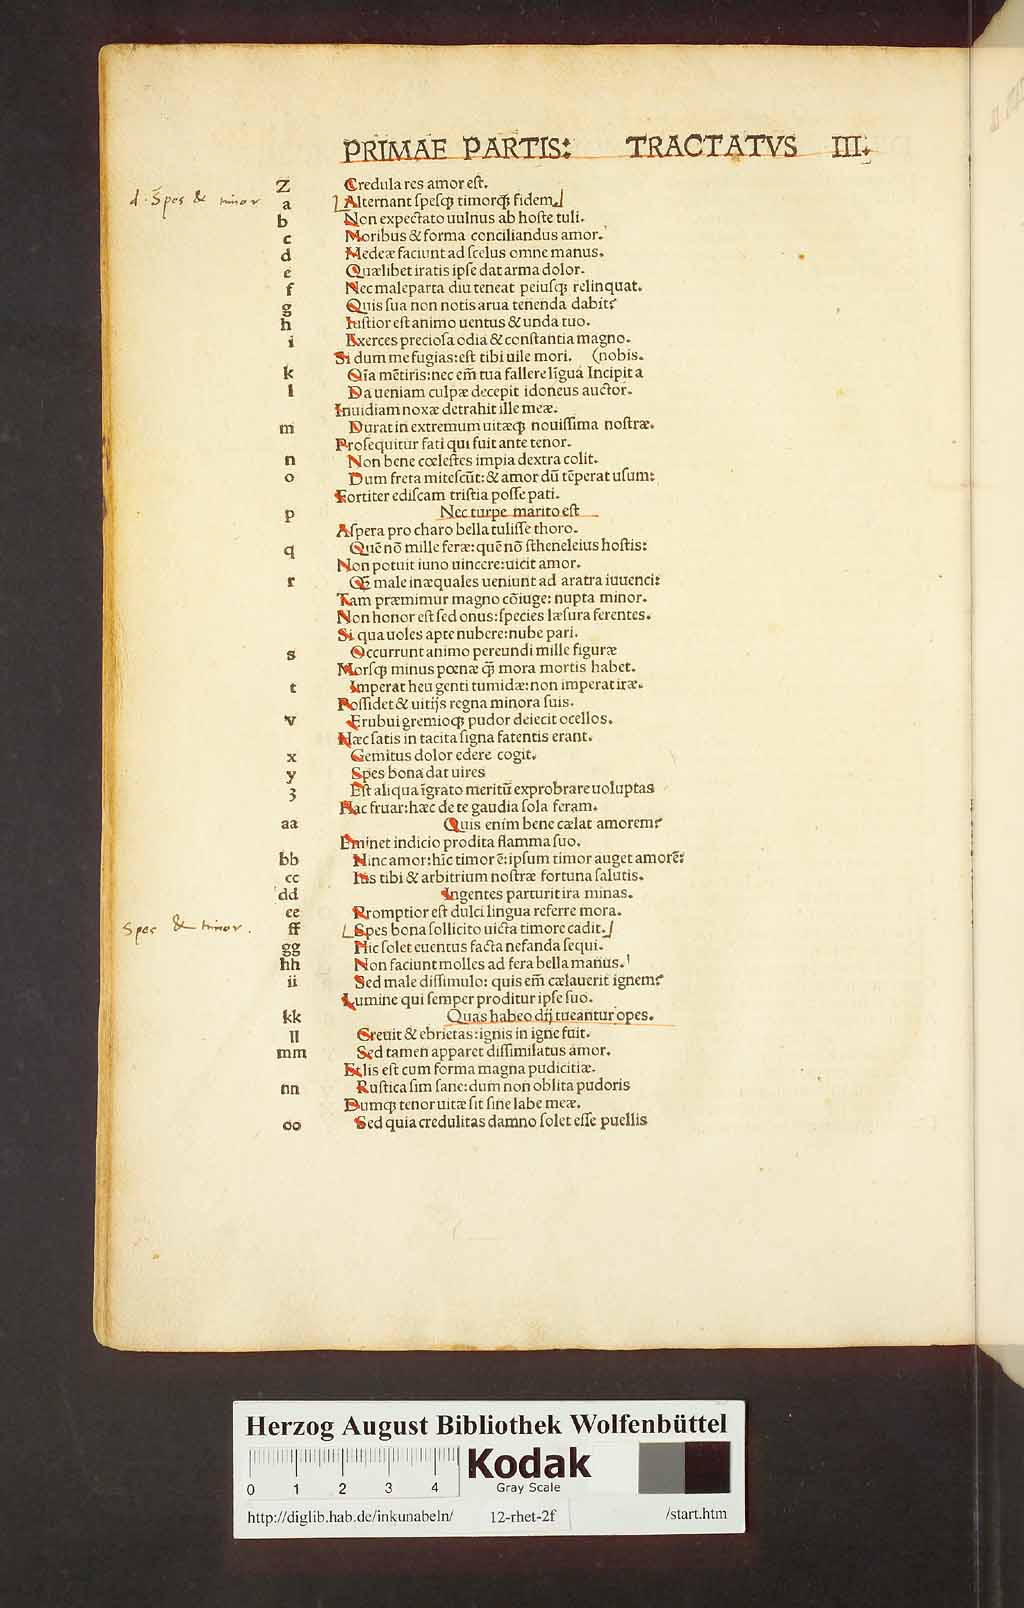 PRIMAE PARTIS: TRACTATVS III.
Z Credula res amor eſt.
d. Spes & timor a Alternant ſpeſqꝫ timorqꝫ fidem.
b Non expectato uulnus ab hoſte tuli.
c Moribus & forma conciliandus amor.
d Medeæ faciunt ad ſcelus omne manus.
e Quælibet iratis ipſe dat arma dolor.
f Nec maleparta diu teneat peiuſqꝫ relinquat.
g Quis ſua non notis arua tenenda dabit?
h Iuſtior eſt animo uentus & unda tuo.
i Exerces precioſa odia & conſtantia magno.
Si dum me fugias: eſt tibi uile mori. (nobis.
k Oīa mētiris: nec em̄ tua fallere līgua Incipit a
l Da ueniam culpæ decepit idoneus auctor.
Inuidiam noxæ detrahit ille meæ.
m Durat in extremum uitæqꝫ nouiſſima noſtræ.
Proſequitur fati qui fuit ante tenor.
n Non bene cœleſtes impia dextra colit.
o Dum freta miteſcūt: & amor dū tēperat uſum:
Fortiter ediſcam triſtia poſſe pati.
p Nec turpe marito eſt
Aſpera pro charo bella tuliſſe thoro.
q Quē nō mille feræ: quē nō ſtheneleius hoſtis:
Non potuit iuno uincere: uicit amor.
r Q̄ male inæquales ueniunt ad aratra iuuenci:
Tam præmimur magno cōiuge: nupta minor.
Non honor eſt ſed onus: ſpecies læſura ferentes.
Si qua uoles apte nubere: nube pari.
s Occurrunt animo pereundi mille figuræ
Morſqꝫ minus pœnæ q̄ mora mortis habet.
t Imperat heu genti tumidæ: non imperat iræ.
Poſſidet & uitijs regna minora ſuis.
v Erubui gremioqꝫ pudor deiecit ocellos.
Hæc ſatis in tacita ſigna fatentis erant.
x Gemitus dolor edere cogit.
y Spes bona dat uires
ʒ Eſt aliqua īgrato meritū exprobrare uoluptas
Hac fruar: hæc de te gaudia ſola feram.
aa Quis enim bene cælat amorem?
Eminet indicio prodita flamma ſuo.
bb Hinc amor: hīc timor ē: ipſum timor auget amorē:
cc Ius tibi & arbitrium noſtræ fortuna ſalutis.
dd Ingentes parturit ira minas.
ee Promptior eſt dulci lingua referre mora.
Spes & timor. ff Spes bona ſollicito uicta timore cadit.
gg Hic ſolet euentus facta nefanda ſequi.
hh Non faciunt molles ad fera bella manus.
ii Sed male diſſimulo: quis em̄ cælauerit ignem?
Lumine qui ſemper proditur ipſe ſuo.
kk Quas habeo dij tueantur opes.
ll Creuit & ebrietas: ignis in igne fuit.
mm Sed tamen apparet diſſimilatus amor.
Et lis eſt cum forma magna pudicitiæ.
nn Ruſtica ſim ſane: dum non oblita pudoris
Dumqꝫ tenor uitæ ſit ſine labe meæ.
oo Sed quia credulitas damno ſolet eſſe puellis
Herzog August Bibliothek Wolfenbüttel
0 1 2 3 4 Kodak
Gray Scale
http://diglib.hab.de/inkunabeln/ 12-rhet-2f /start.htm